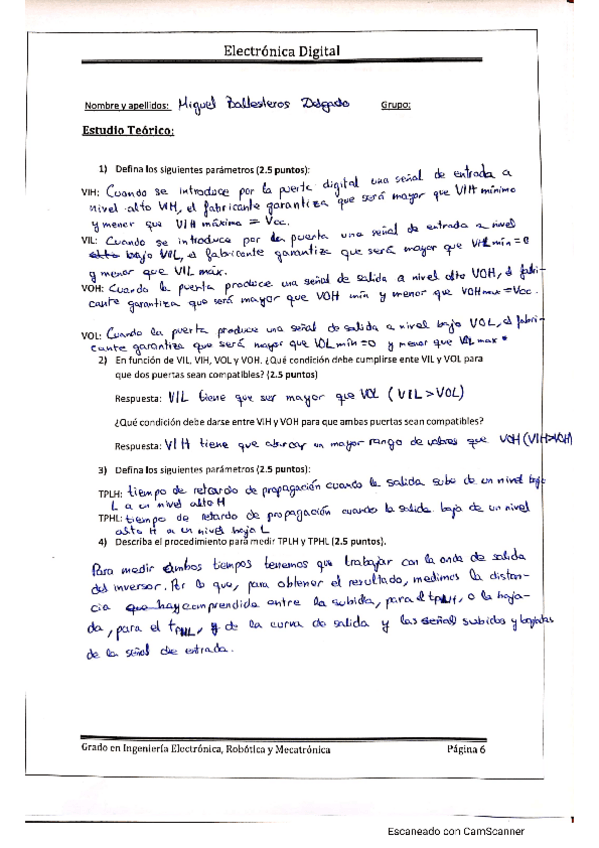 Electrónica Digital
Nombre y apellidos: Miguel Ballesteros Delgado Grupo:
Estudio Teórico:
1) Defina los siguientes parámetros (2.5 puntos):
VIH: Cuando se introduce por la puerta digital una señal de entrada a
nivel alto VIH, el fabricante garantiza que será mayor que VIH mínimo
y menor que VIH máximo = Vcc.
VIL: Cuando se introduce por la puerta una señal de entrada a nivel
alto bajo VIL, el fabricante garantiza que será mayor que VIL mín = 0
y menor que VIL max.
VOH: Cuando la puerta produce una señal de salida a nivel alto VOH, el fabri-
cante garantiza que será mayor que VOH min y menor que VOH max = Vcc.
VOL: Cuando la puerta produce una señal de salida a nivel bajo VOL, el fabri-
cante garantiza que será mayor que VOL mín = 0 y menor que VOL max.
2) En función de VIL, VIH, VOL y VOH. ¿Qué condición debe cumplirse ente VIL y VOL para
que dos puertas sean compatibles? (2.5 puntos)
Respuesta: VIL tiene que ser mayor que VOL (VIL>VOL)
¿Qué condición debe darse entre VIH y VOH para que ambas puertas sean compatibles?
Respuesta: VIH tiene que abarcar un mayor rango de valores que VOH (VIH>VOH)
3) Defina los siguientes parámetros (2.5 puntos):
TPLH: tiempo de retardo de propagación cuando la salida sube de un nivel bajo
L a un nivel alto H
TPHL: tiempo de retardo de propagación cuando la salida baja de un nivel
alto H a un nivel bajo L
4) Describa el procedimiento para medir TPLH y TPHL (2.5 puntos).
Para medir ambos tiempos tenemos que trabajar con la onda de salida
del inversor. Por lo que, para obtener el resultado, medimos la distan-
cia que hay comprendida entre la subida, para el tPLH, o la baja-
da, para el tPHL, y de la curva de salida y las señal subidas y bajadas
de la señal de entrada.
Grado en Ingeniería Electrónica, Robótica y Mecatrónica Página 6
Escaneado con CamScanner